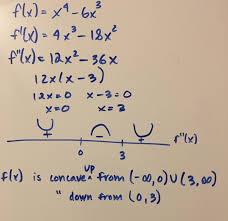 f(x) = x⁴ - 6x³
f'(x) = 4x³ - 18x²
f''(x) = 12x² - 36x
12x(x - 3)
12x = 0 x - 3 = 0
x = 0 x = 3
+ - +
0 3 f''(x)
f(x) is concave up from (-∞, 0) ∪ (3, ∞)
" down from (0, 3)